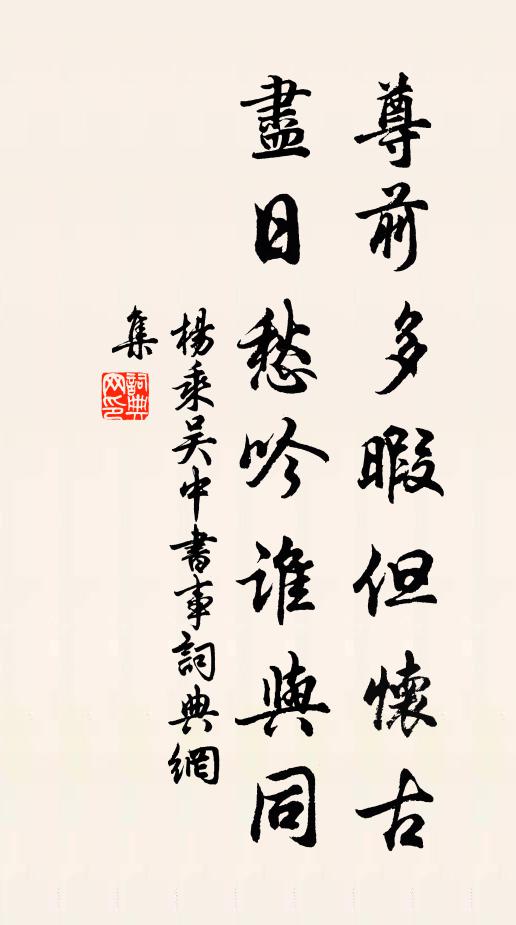 尊前多暇但懷古
盡日愁吟誰與同
楊乘吳中書事詞典網
集
詞典網印